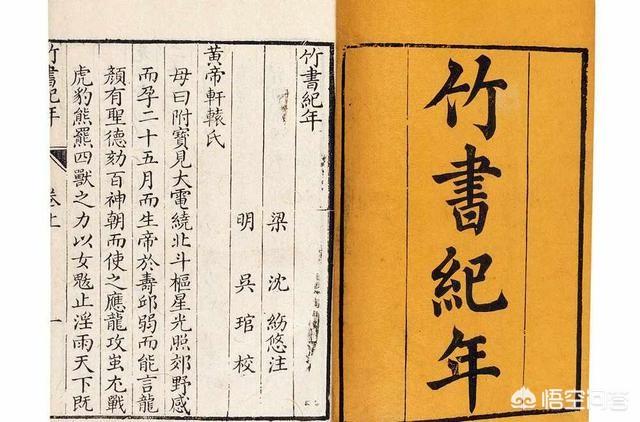 竹書紀年
竹書紀年
梁 沈 約 悠注
明 吳 琯 校
黃帝軒轅氏
母曰附寶見大電繞北斗樞星光照郊野感
而孕二十五月而生帝於壽邱弱而能言龍
顏有聖德劾百神朝而使之應龍攻蚩尤戰
虎豹熊羆四獸之力以女魃止淫雨天下既
竹書紀年 卷上 一
悟空问答